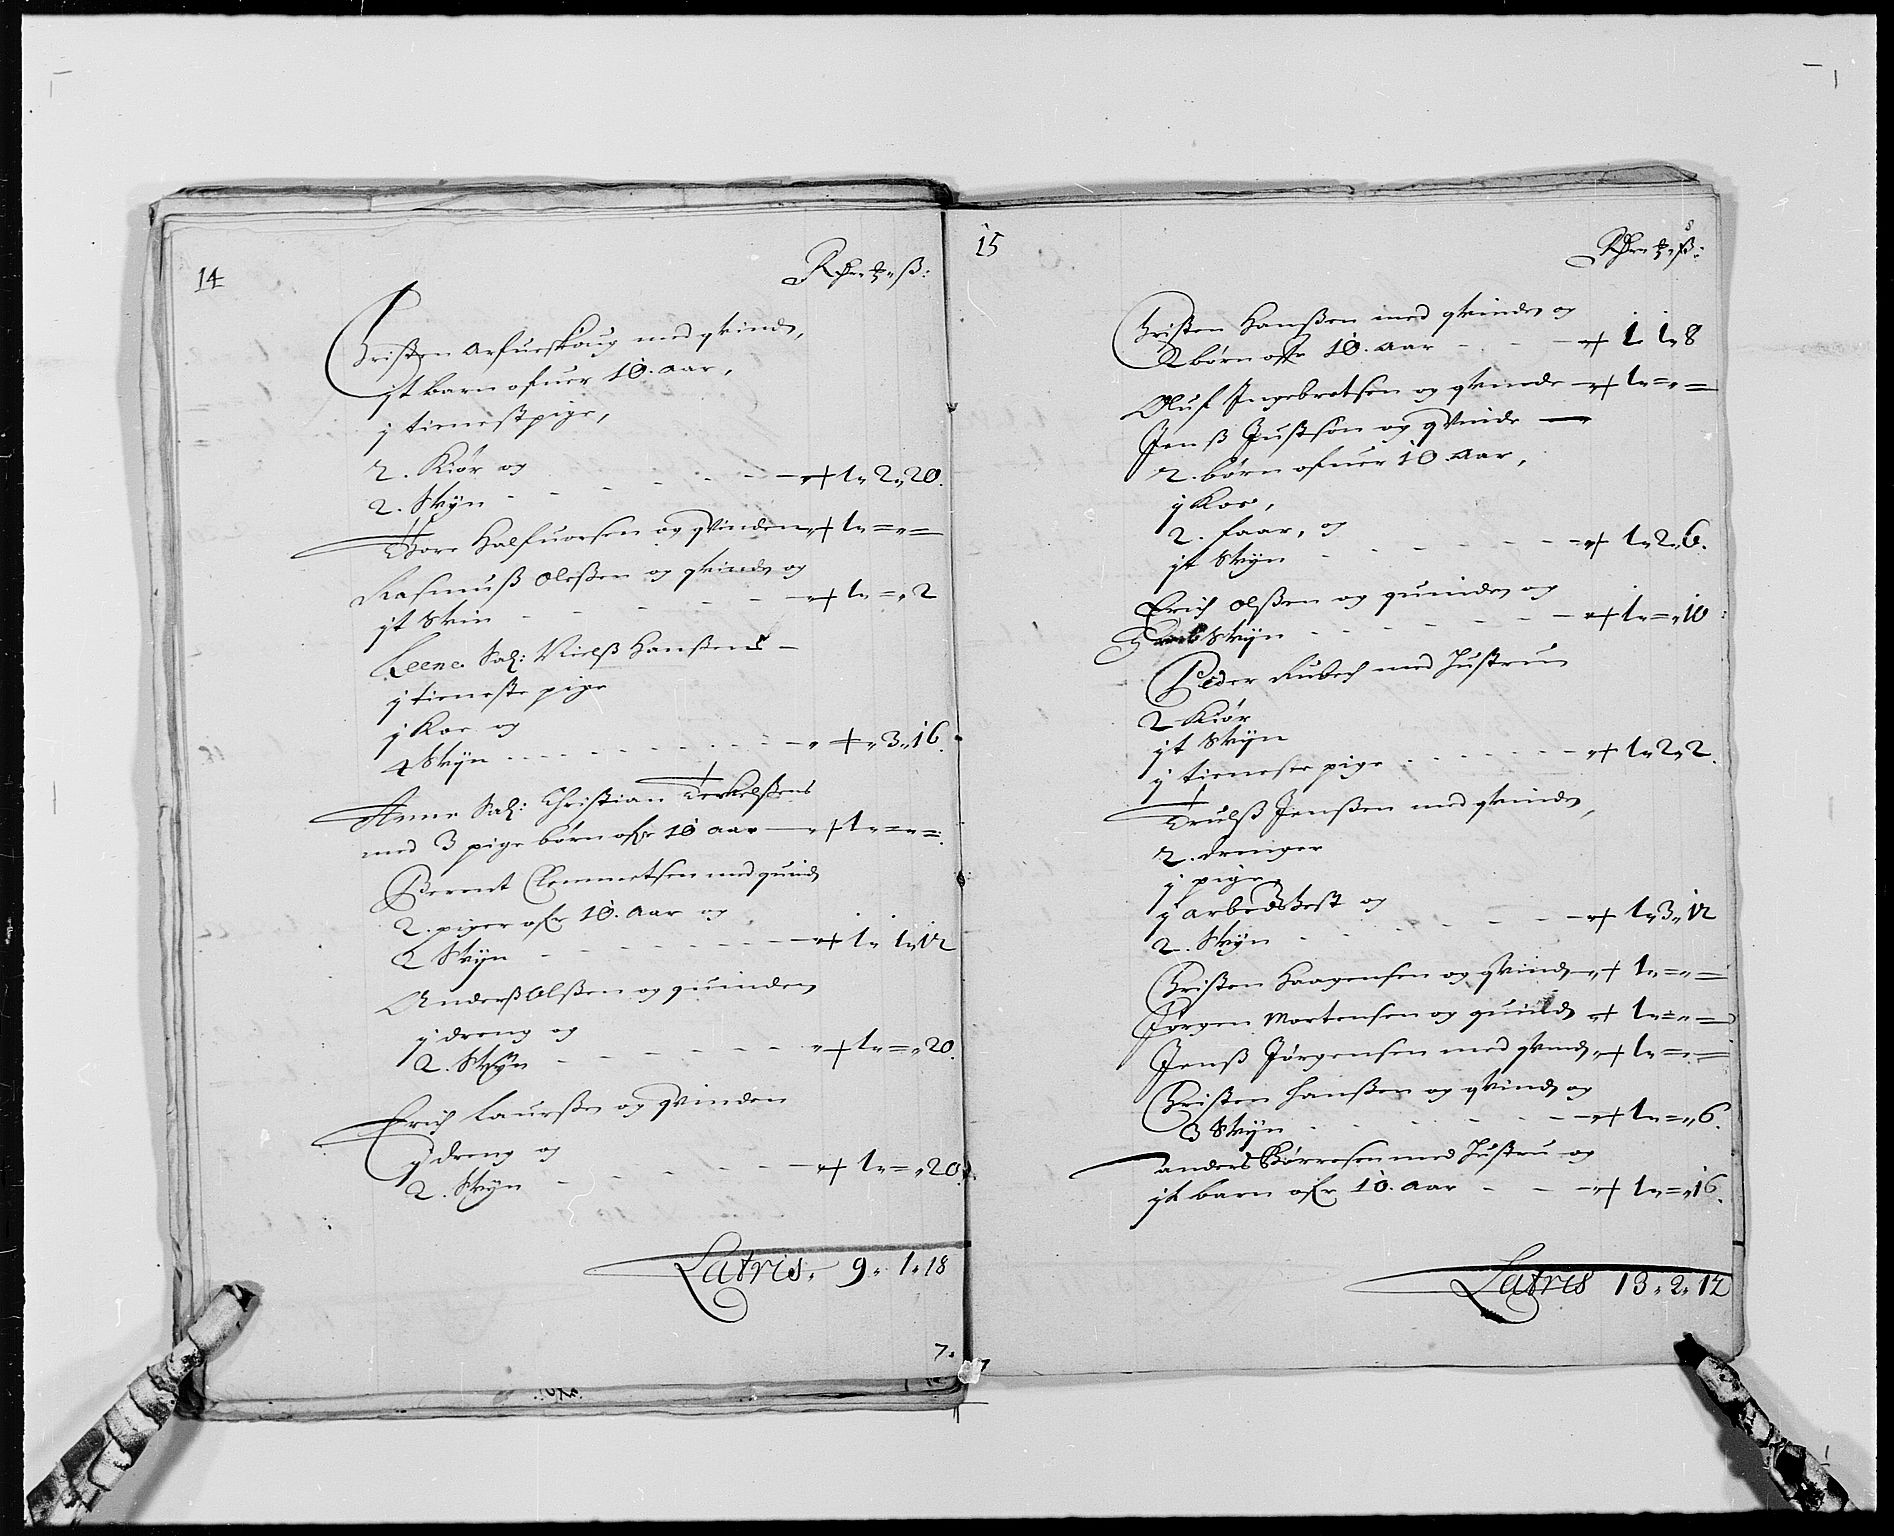 14
Rdr. ℔. ß:
Christen Arfueskoug med qvinde,
jt barn ofuer 10. aar,
j tienestpige,
2. Kiør og
2. Svijn - - - - - - + 1. 2. 20.
Tore Halfuorsen og qvinden + 1. = . =
Rasmuß Olßen og qvinde og
jt Svin - - - - - + 1. = . 2
Leene Sal: Nielß Hanßens -
j tieneste pige
j Koe og
4 Svijn - - - - - - + . 3. 16.
Anne Sal: Christian Terkelßens
med 3 pige børn ofr 10 aar - + 1. = . = .
Berent Clemmetsen med quinde
2. piger ofr 10. aar og
2 Svijn - - - - - + 1. 1. 12
Anderß Olßen og quinden
j dreng og
2. Svijn - - - - - + 1. = . 20.
Erich Laurßen og qvinden
j dreng og
2. Svijn - - - - - + 1. = . 20.
Latris. 9. 1. 18
7.
15
Rdr. ℔. ß:
8
Christen Hanßen med qvinde og
2 børn ofr 10. aar - - - + 1. 1. 8
Oluf Ingebretsen og qvinde + 1. = . =
Jenß Justsøn og qvinde —
2. børn ofuer 10 aar,
j Koe,
2. faar, og
jt Svijn - - - - - - + 1. 2. 6.
Erich Olßen og quinde og
5 Svijn - - - - - - + 1. = . 10
Peder Rubech med Hustrue
2 Kiør
jt Svijn
j tieneste pige - - - - - + 1. 2. 2.
Trulß Jenßen med qvinde,
2. drenger
j pige
j arbedshest og
2. Svijn - - - - - + 1. 3. 12
Christen Haagensen og qvinde + 1. = . =
Jørgen Mortensen og quinde + 1. = . =
Jenß Jørgensen med qvinde + 1. = . =
Christen Hanßen og qvinde og
3 Svijn - - - - - + 1. = . 6.
Anders Børresen med Hustru og
jt barn ofr 10. aar - - - + 1. = . 16.
Latris 13. 2. 12